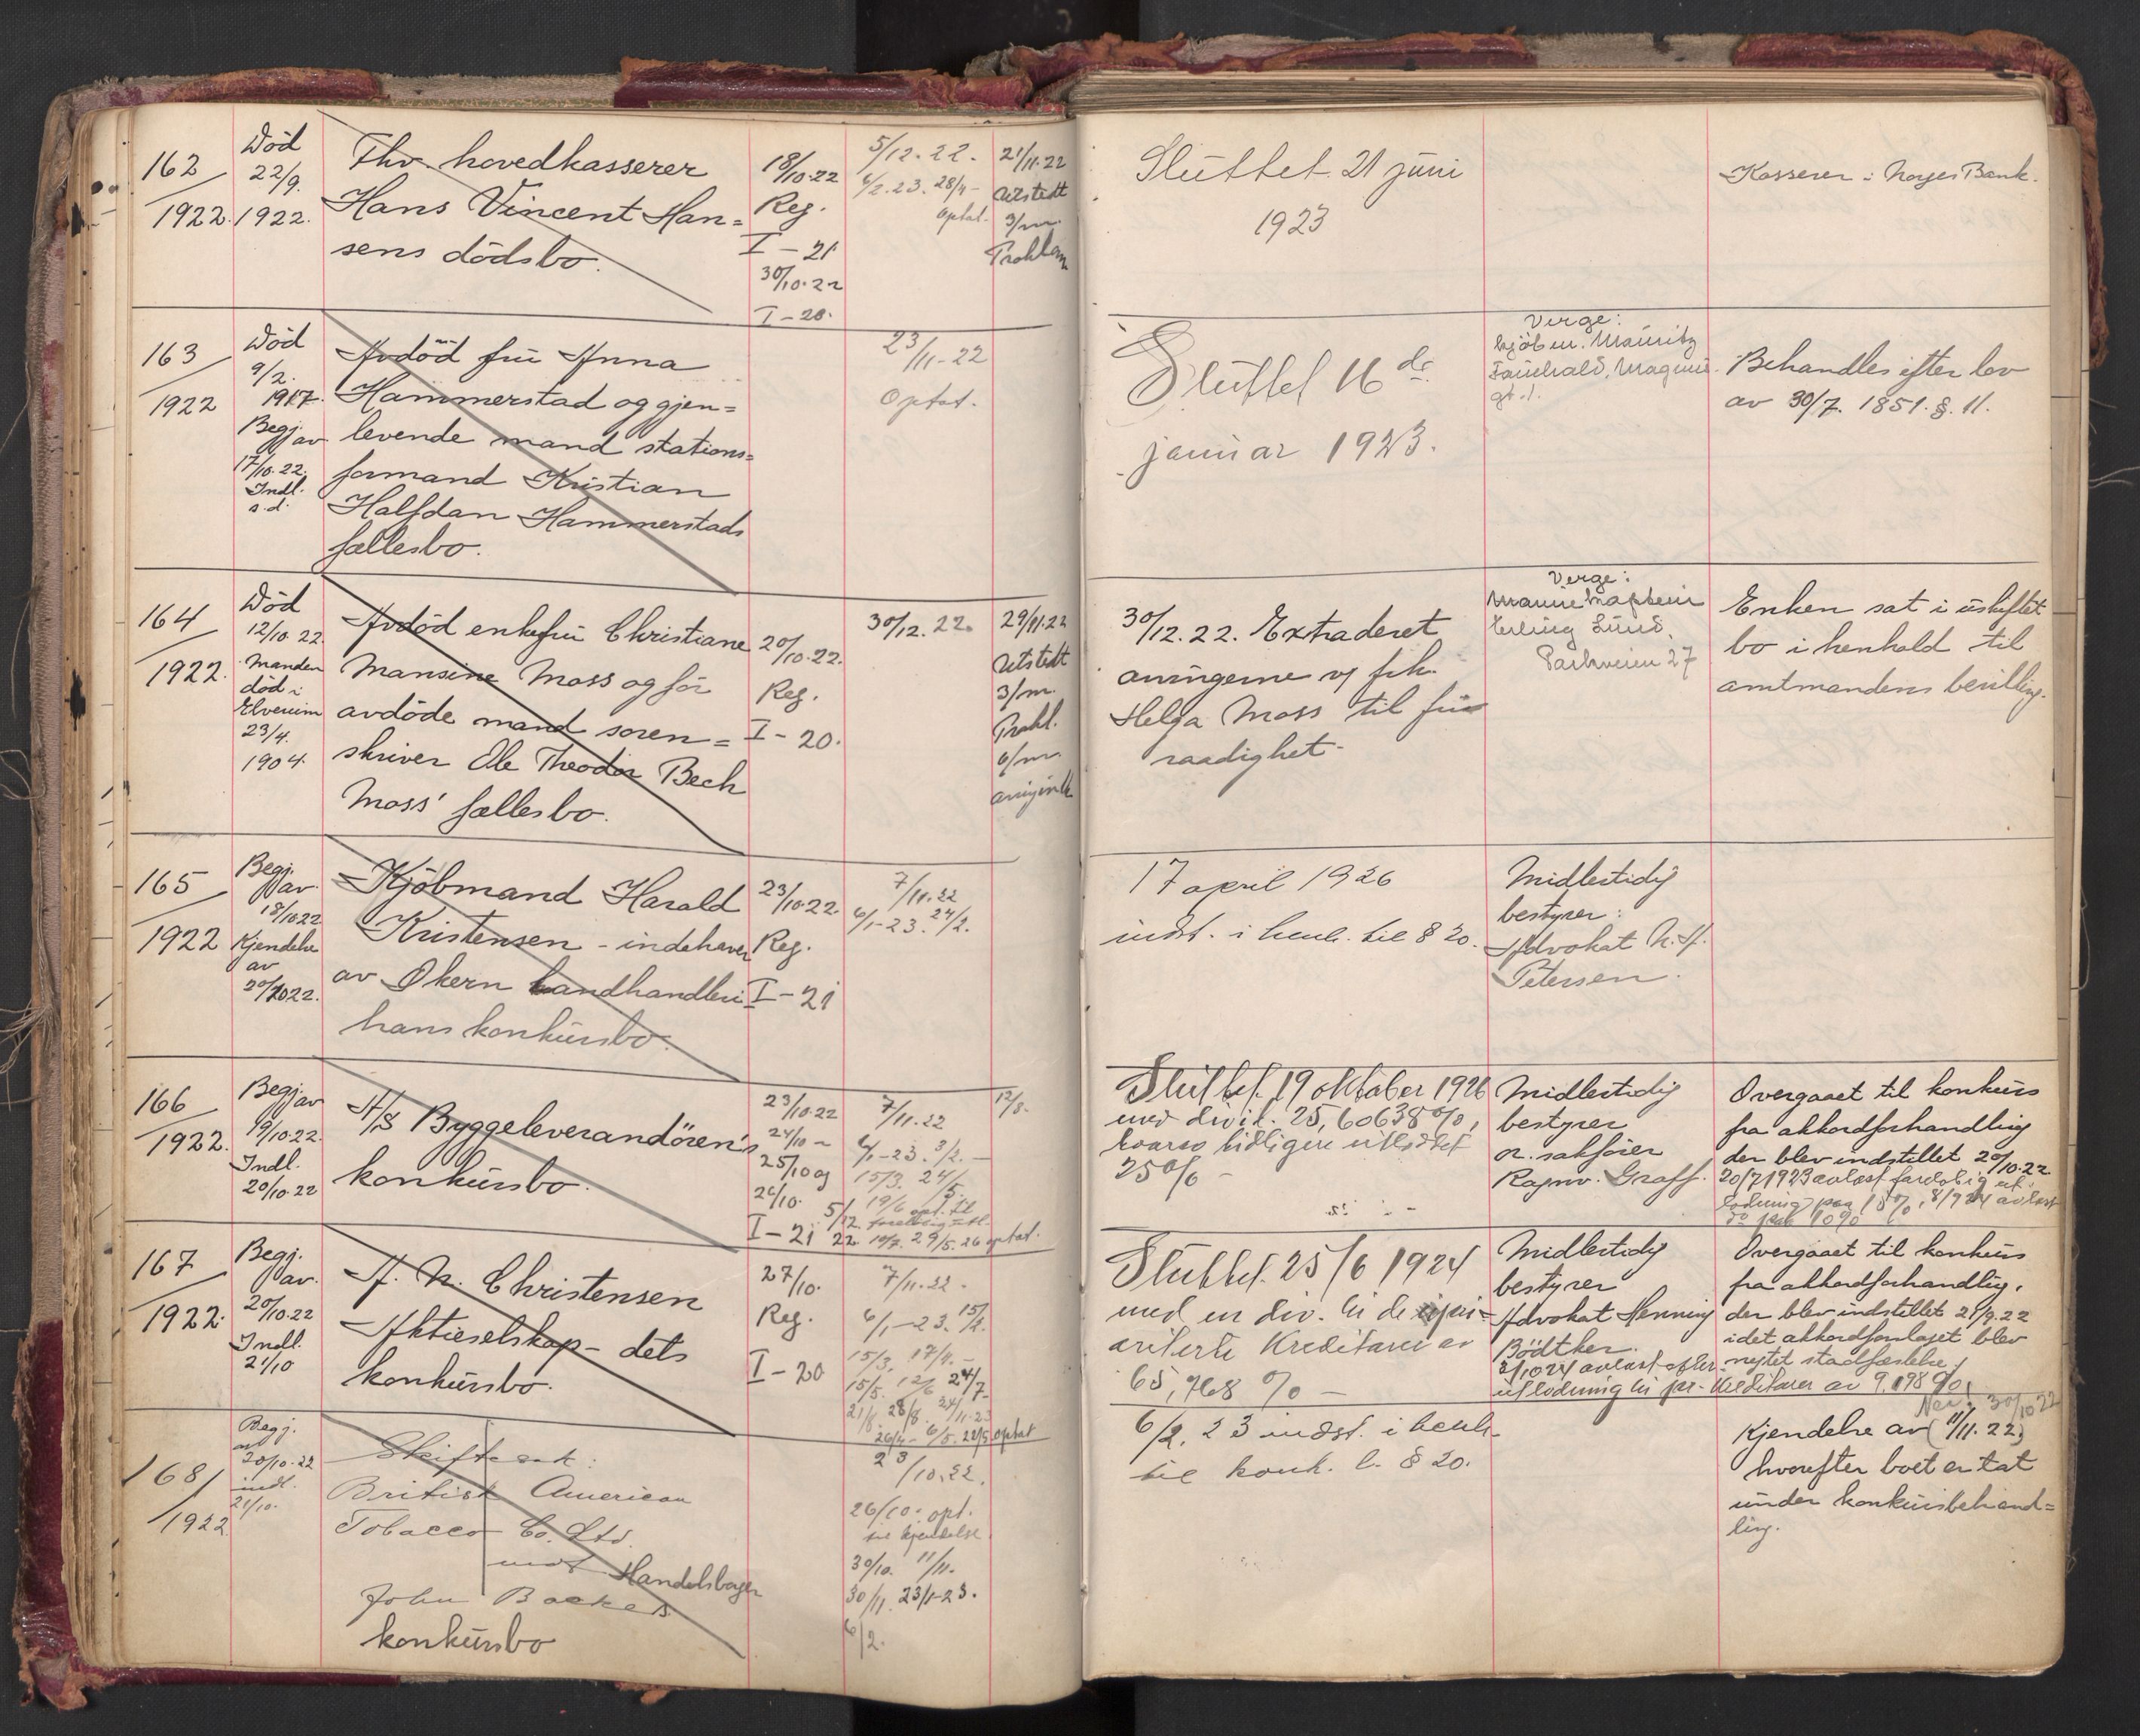 162
1922
Död
22/9.
1922.
Fhv. hovedkasserer
Hans Vincent Han=
sens dödsbo.
18/10.22
Reg.
I - 21
30/10.22
I - 20.
5/12.22.
6/2.23. 28/4 -
optat.
21/11.22
Utstedt
3/m.
Proklam
Sluttet. 21 juni
1923
Kasserer i Norges Bank.
163
1922
Död
9/2.
1917.
Begj. av
17/10.22.
Indl.
s.d.
Avdöd frü Anna
Hammerstad og gjen=
levende mand stations=
formand Kristian
Halfdan Hammerstads
fællesbo.
23/11-22
Optat.
Sluttet 16de
januar 1923.
Verge:
kjöbm. Mauritz
Behandles efter lov
av 30/7. 1851. §. 11.
164
1922.
Död
12/10.22.
Manden
död i
Elverum
23/4.
1904.
Avdöd enkefrü Christiane
Mansine Moss og för
avdöde mand soren=
skriver Ole Theodor Bech
Moss' fællesbo.
20/10.22.
Reg.
I - 20.
30/12.22.
29/11.22
Utstedt
3/m.
Prokl.
6/m.
30/12.22. Extraderet
arvingerne v/ frk.
Helga Moss til frü
raadighet.
Verge:
Erling Lund.
Parkveien 27
Enken sat i üskiftet
bo i henhold til
amtmandens bevilling.
165
1922
Begj.
av.
18/10.22
Kjendelse
av
20/10.22.
Kjöbmand Harald
Kristensen - indehaver
av Økern Landhandleri
hans konkürsbo.
23/10.22.
Reg.
I - 21
7/11.22
6/1-23. 24/2.
17 april 1926
indst. i henh. til § 20.
Midlertidig
bestyrer:
Advokat N. A.
Petersen.
166
1922.
Begj. av
19/10.22.
Indl.
20/10.22
A/S Byggeleverandören's
konkürsbo.
23/10.22
24/10 -
25/10 og
26/10.
I - 21
5/12 22
7/11.22
6/1-23. 3/2. -
15/3. 24/5.
19/6 opt. til
29/5. 26 optat.
12/8.
Sluttet. 19 oktober 1926
med divid. 25,60638 %,
hvorav tidligere utloddet
25 % -
Midlertidig
bestyrer
o.r. sakförer
Ragnv. Graff.
Overgaaet til konkürs
fra akkordforhandling
der blev indstillet 20/10.22
20/7 1923 avlæst forelöbig ut-
lodning paa 15 %, 8/9 24 avlæst
do paa 10 %
167
1922.
Begj.
av.
20/10.22
Indl.
21/10
A. N. Christensen
Aktieselskap - dets
konkürsbo.
27/10.
Reg.
I - 20
7/11.22 -
6/1-23. 15/2.
15/3. 17/4. -
15/5. 12/6 24/7 -
21/8. 28/8. 24/11.23
26/4 - 6/5. 22/5 optat
Sluttet. 25/6 1924
med en div. til de upri=
oriterte Kreditorer av
65,768 % -
Midlertidig
bestyrer
Advokat Henning
Bödtker.
2/10 24 avlæst efter-
utlodning til pr. Kreditorer av 9,198 %,
Overgaaet til konkürs
fra akkordforhandling,
der blev indstillet 21/9.22
idet akkordforslaget blev
negtet stadfæstelse.
168/
1922
Begj.
av
20/10.22
indl.
21/10.
Skiftesak:
British American
Tobacco Co. Ltd.
mot Handelsborger
John Backes
konkürsbo
23/10.22.
26/10. opt.
til kjendelse
30/10. 11/11.
30/11. 23/1-23.
6/2.
6/2. 23 indst. i henh.
til konk. l. § 20.
30/10 22
Kjendelse av (11/11.22)
hvorefter boet er tat
under konkürsbehand=
ling.